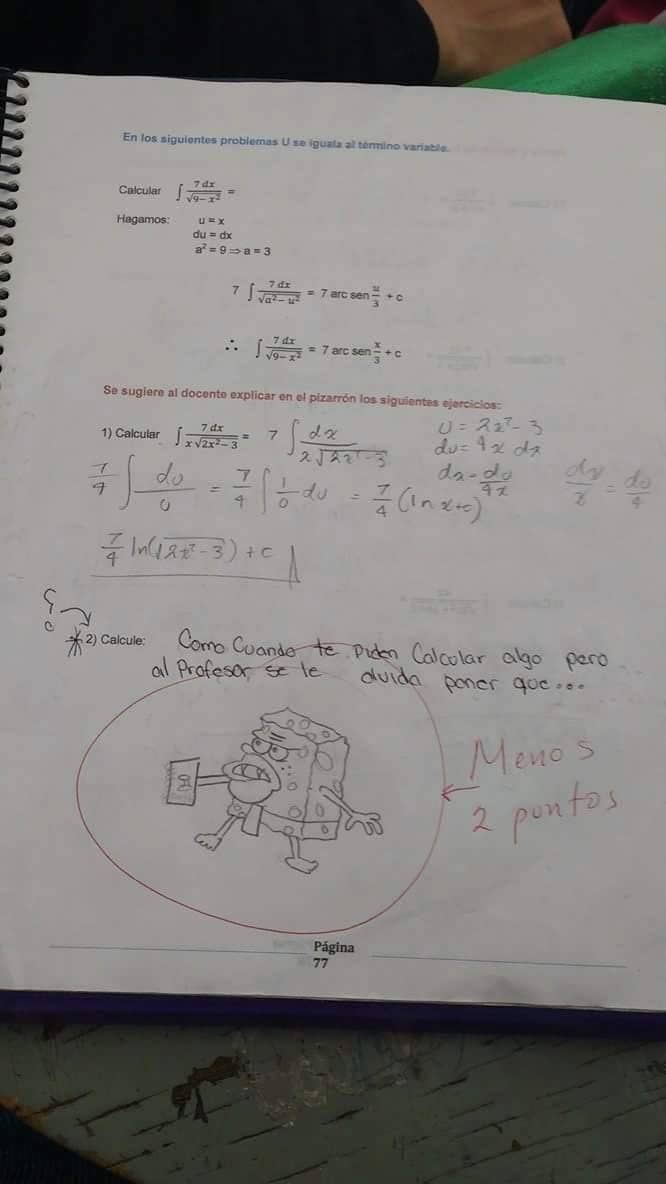 En los siguientes problemas U se iguala al término variable.
Calcular ∫ 7 dx / √(9 − x²) =
Hagamos: u = x
du = dx
a² = 9 ⇒ a = 3
7 ∫ 7 dx / √(a² − u²) = 7 arc sen u/3 + c
∴ ∫ 7 dx / √(9 − x²) = 7 arc sen x/3 + c
Se sugiere al docente explicar en el pizarrón los siguientes ejercicios:
1) Calcular ∫ 7 dx / x√(2x² − 3) = 7 ∫ dx / 2√(2x² − 3)
U = 2x² − 3
du = 4x dx
dx = du/4x
dx/x = du/4
7/4 ∫ du/u = 7/4 ∫ 1/u du = 7/4 (ln x + c)
7/4 ln(√(2x² − 3)) + c
2) Calcule: Como Cuando te Piden Calcular algo pero
al Profesor se le olvida poner que...
Menos
2 puntos
Página
77